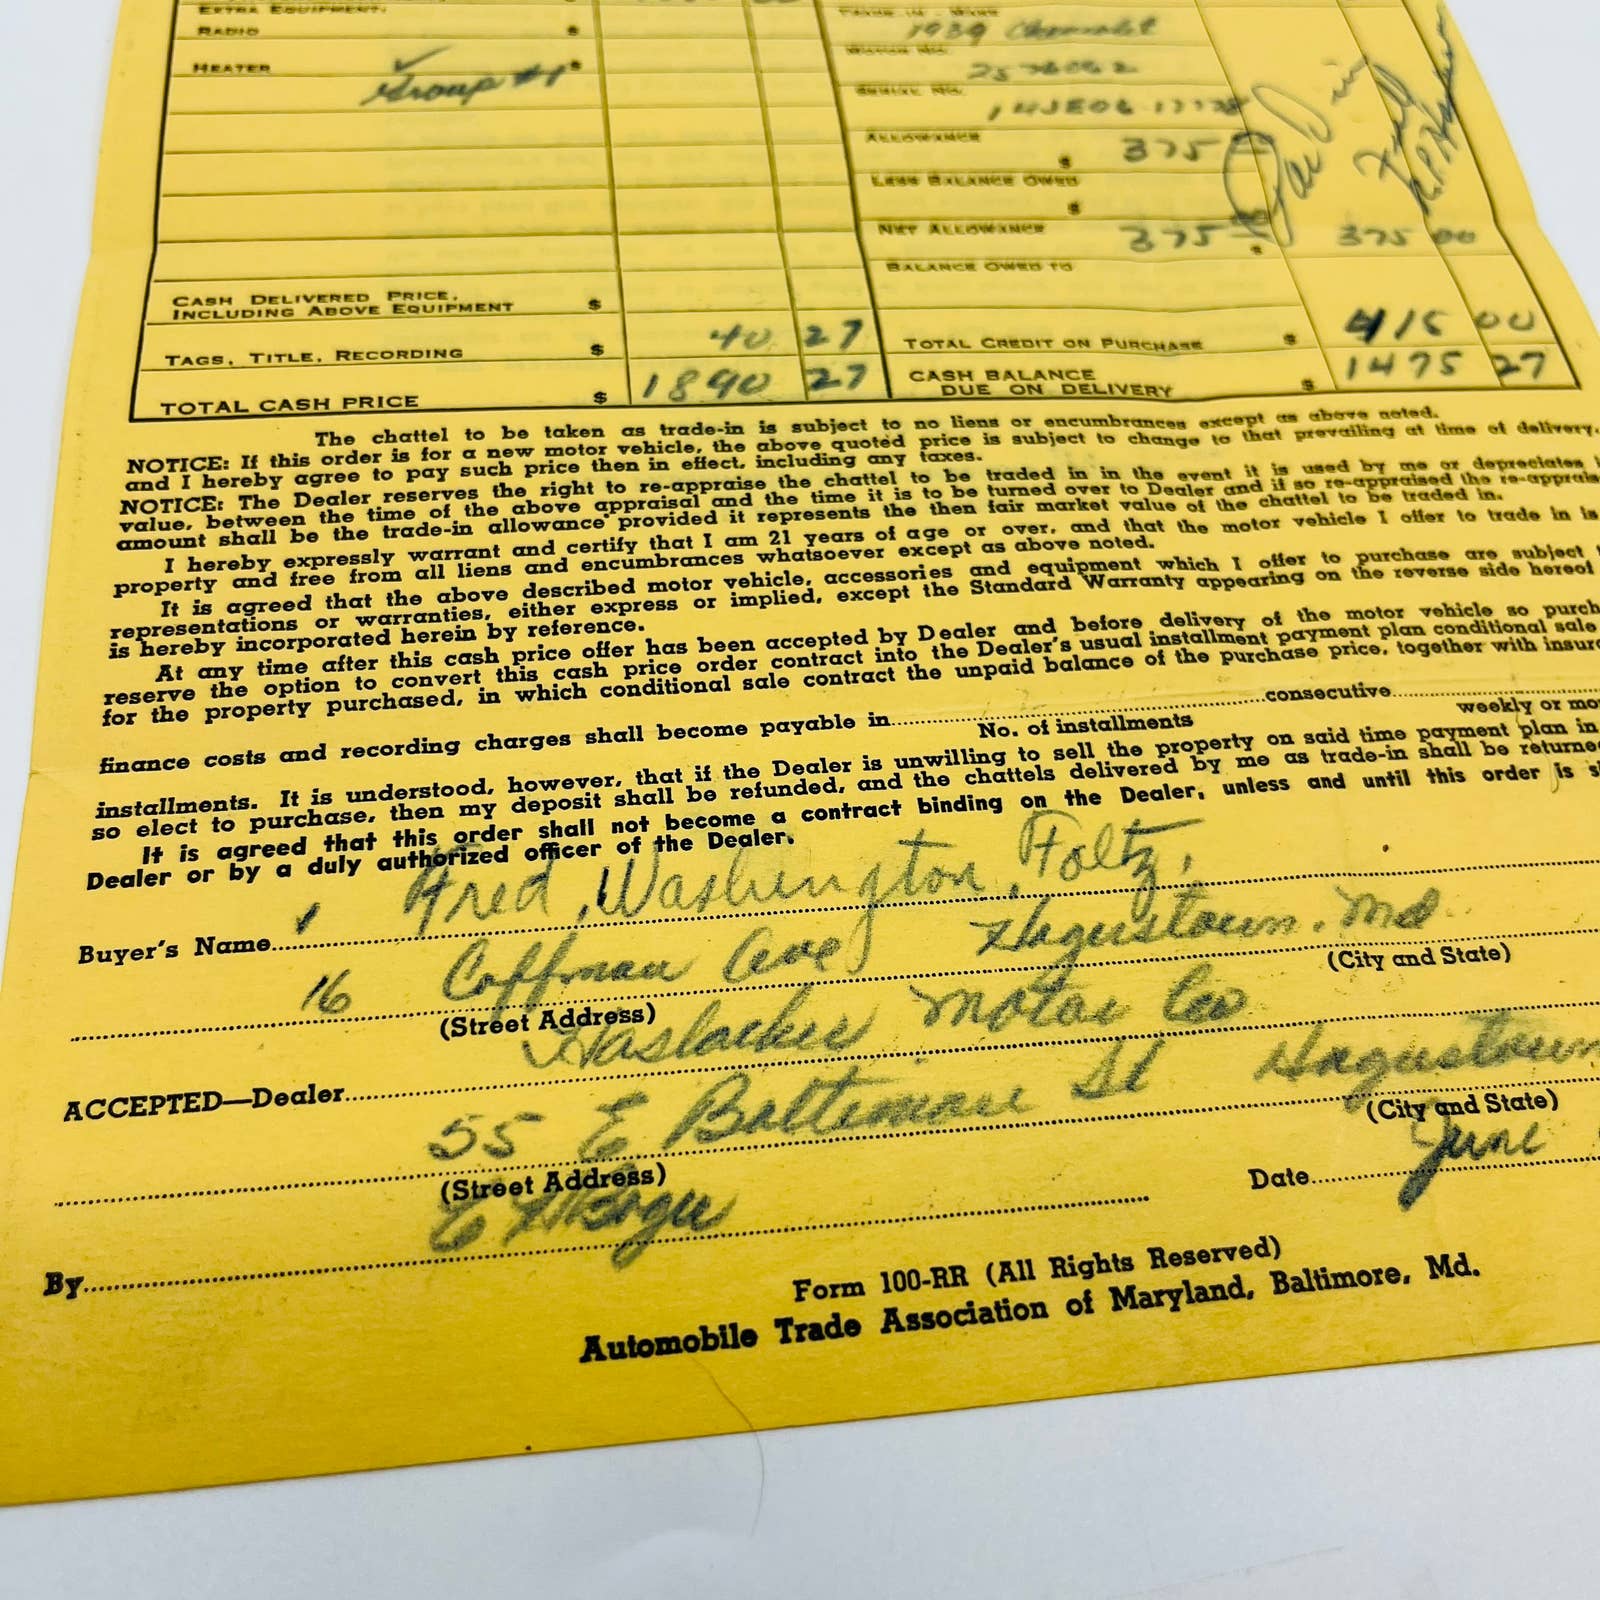 EXTRA EQUIPMENT:
RADIO $
HEATER $
Group #1
CASH DELIVERED PRICE,
INCLUDING ABOVE EQUIPMENT $
TAGS, TITLE, RECORDING $ 40 27
TOTAL CASH PRICE $ 1890 27
1939 Chevrolet
MOTOR NO.
SERIAL NO.
ALLOWANCE $ 375
LESS BALANCE OWED $
NET ALLOWANCE $ 375 375 00
BALANCE OWED TO
TOTAL CREDIT ON PURCHASE $ 415 00
CASH BALANCE
DUE ON DELIVERY $ 1475 27
Paid in
Full
The chattel to be taken as trade-in is subject to no liens or encumbrances except as above noted.
NOTICE: If this order is for a new motor vehicle, the above quoted price is subject to change to that prevailing at time of delivery,
and I hereby agree to pay such price then in effect, including any taxes.
NOTICE: The Dealer reserves the right to re-appraise the chattel to be traded in in the event it is used by me or depreciates
value, between the time of the above appraisal and the time it is to be turned over to Dealer and if so re-appraised the
amount shall be the trade-in allowance provided it represents the then fair market value of the chattel to be traded in.
I hereby expressly warrant and certify that I am 21 years of age or over, and that the motor vehicle I offer to trade in is
property and free from all liens and encumbrances whatsoever except as above noted.
It is agreed that the above described motor vehicle, accessories and equipment which I offer to purchase are subject
representations or warranties, either express or implied, except the Standard Warranty appearing on the reverse side hereof
is hereby incorporated herein by reference.
At any time after this cash price offer has been accepted by Dealer and before delivery of the motor vehicle so purch
reserve the option to convert this cash price order contract into the Dealer's usual installment payment plan conditional sale
for the property purchased, in which conditional sale contract the unpaid balance of the purchase price, together with insur
finance costs and recording charges shall become payable in..........consecutive..........
No. of installments weekly or mo
installments. It is understood, however, that if the Dealer is unwilling to sell the property on said time payment plan in
so elect to purchase, then my deposit shall be refunded, and the chattels delivered by me as trade-in shall be returne
It is agreed that this order shall not become a contract binding on the Dealer, unless and until this order is s
Dealer or by a duly authorized officer of the Dealer.
Buyer's Name Fred Washington Foltz,
16 Coffman Ave Hagerstown. Md
(Street Address) (City and State)
ACCEPTED—Dealer Haslacker Motor Co
55 E Baltimore St Hagerstown
(Street Address) (City and State)
Date June
By
Form 100-RR (All Rights Reserved)
Automobile Trade Association of Maryland, Baltimore, Md.